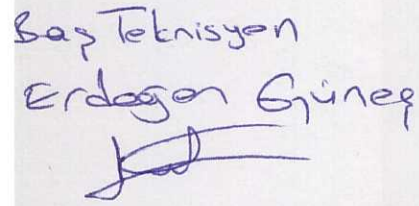 Baş Teknisyen
Erdogan Güneş